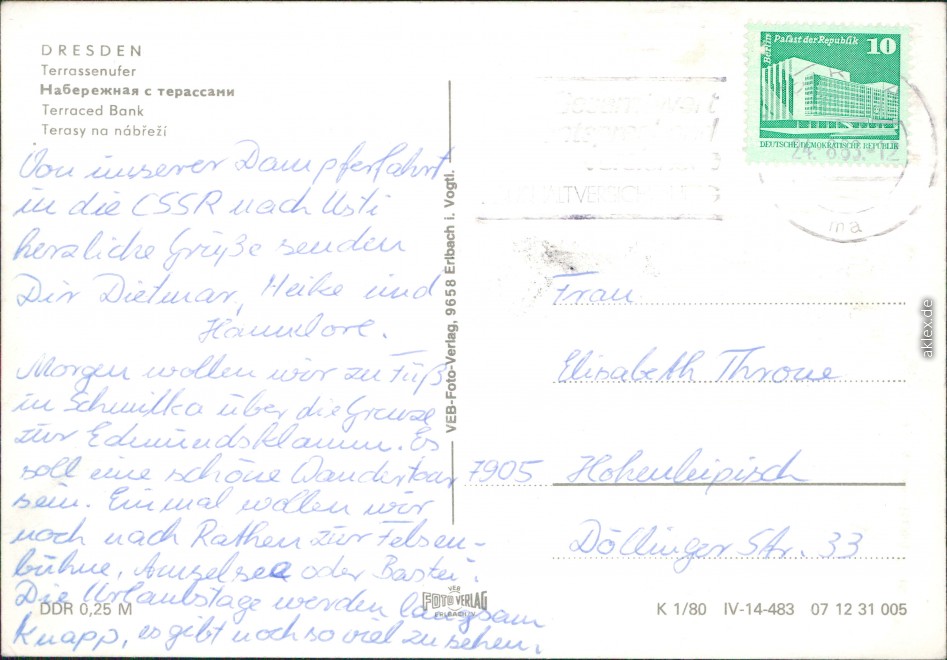 DRESDEN
Terrassenufer
Набережная с терассами
Terraced Bank
Terasy na nábřeží
Von unserer Dampferfahrt
in die CSSR nach Usti
herzliche Grüße senden
Dir Dietmar, Heike und
Hannelore.
Morgen wollen wir zu Fuß
in Schmilka über die Grenze
zur Edmundsklamm. Es
soll eine schöne Wandertour
sein. Einmal wollen wir
noch nach Rathen zur Felsen-
bühne, Amselsee oder Bastei.
Die Urlaubstage werden langsam
knapp, es gibt noch so viel zu sehen.
DDR 0,25 M
VEB-Foto-Verlag, 9658 Erlbach i. Vogtl.
VEB
FOTO VERLAG
ERLBACH
Berlin
Palast der Republik
10
DEUTSCHE DEMOKRATISCHE REPUBLIK
24. 8.83.-12
ma
Frau
Elisabeth Throne
7905 Hohenleipisch
Döllinger Str. 33
K 1/80 IV-14-483 07 12 31 005
aklex.de